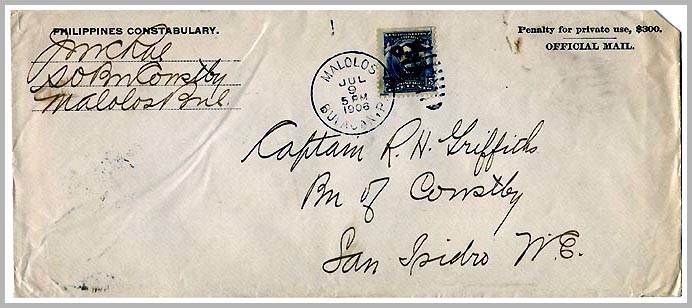 PHILIPPINES CONSTABULARY.
JMcRae
SO Bn Constby
Malolos Bul.
MALOLOS
JUL
9
5 PM
1906
BULACAN, P.I.
Penalty for private use, $300.
OFFICIAL MAIL.
Captain R. H. Griffiths
Bn of Constby
San Isidro N.E.